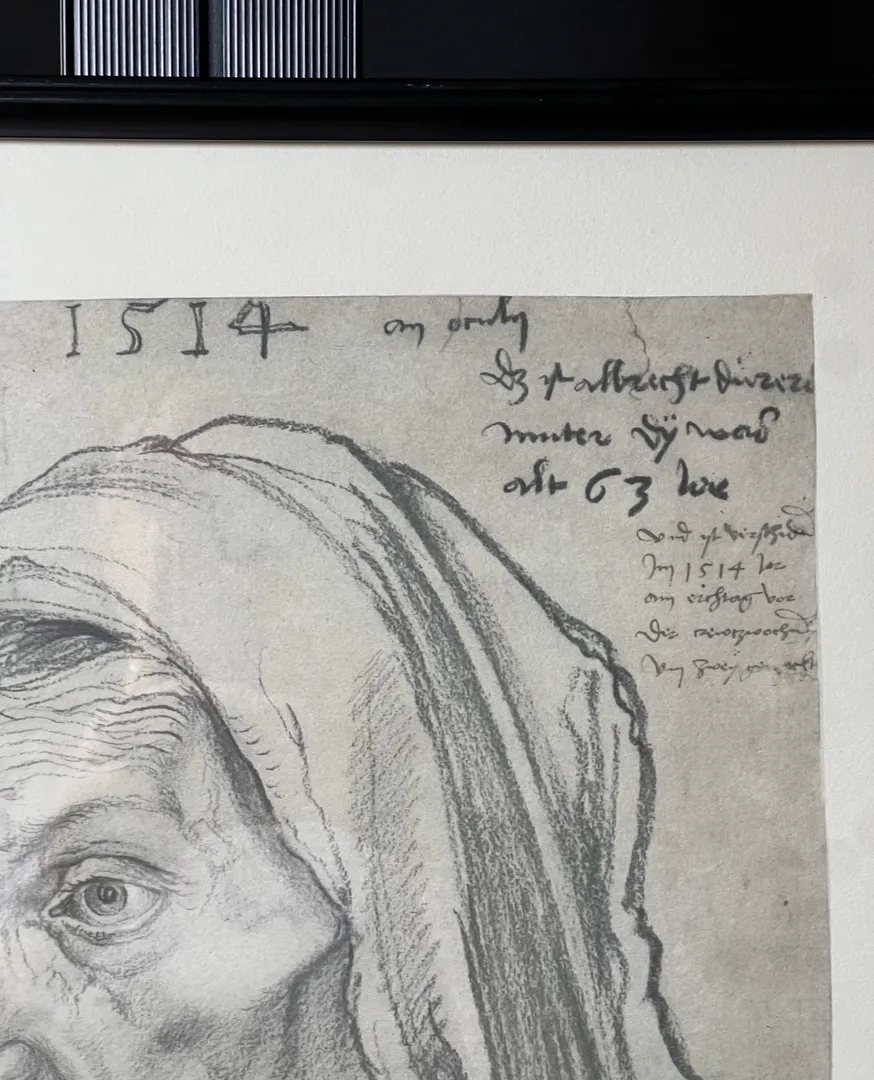 1514 an oculy
Dz ist albrecht dürers
muter dÿ was
alt 63 Jor
vnd ist verschiden
Im 1514 Jor
am erchtag vor
der crewtzwochen
vm zwey genacht